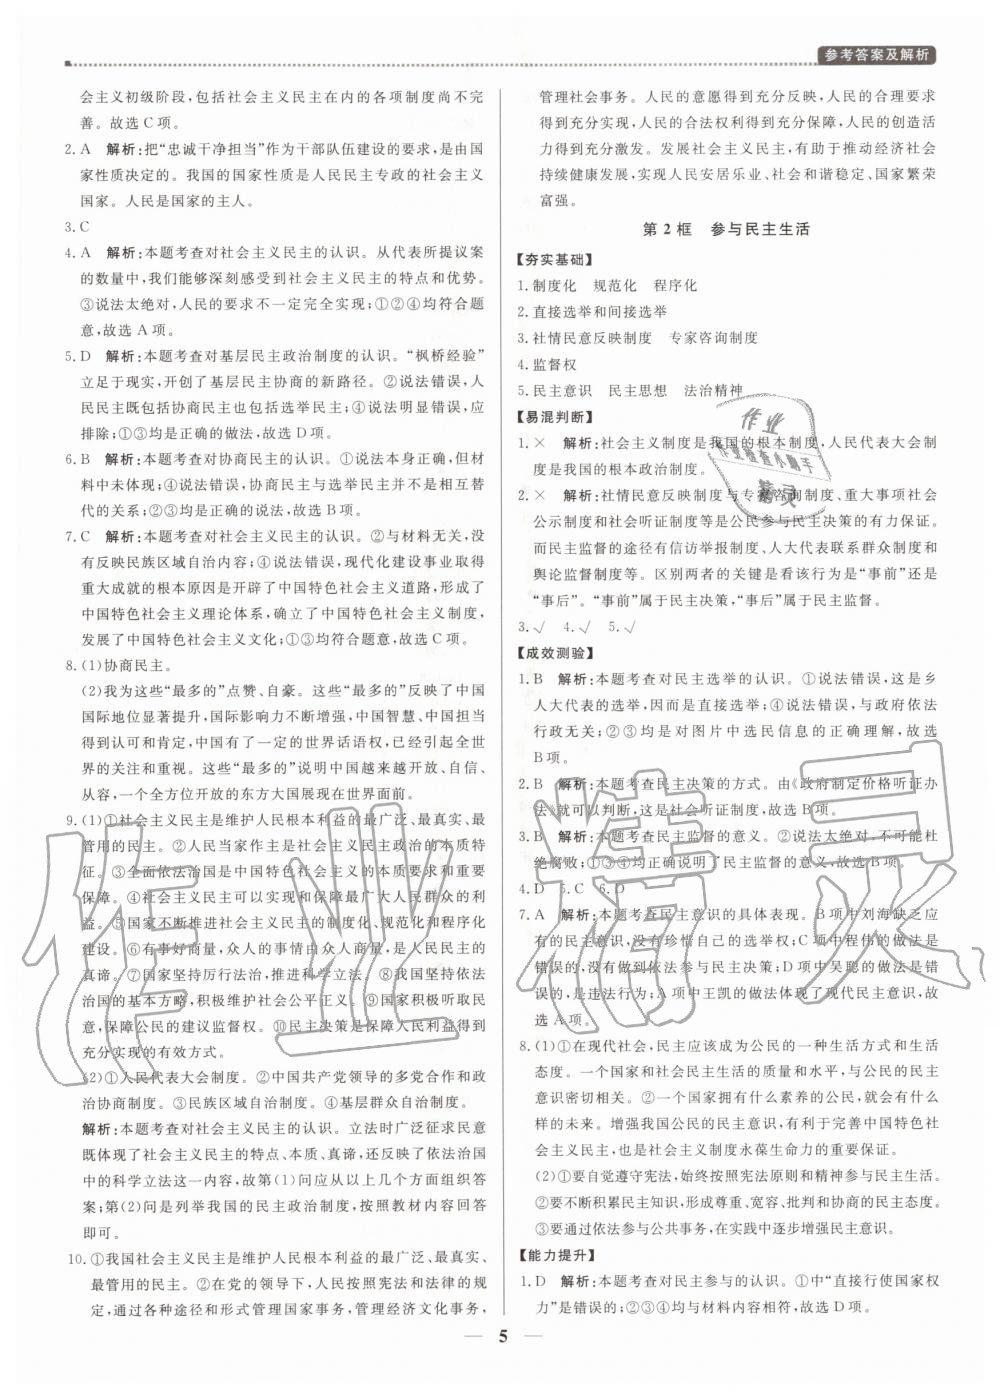 参考答案及解析
会主义初级阶段,包括社会主义民主在内的各项制度尚不完
善。故选C项。
2. A 解析:把“忠诚干净担当”作为干部队伍建设的要求,是由国
家性质决定的。我国的国家性质是人民民主专政的社会主义
国家。人民是国家的主人。
3. C
4. A 解析:本题考查对社会主义民主的认识。从代表所提议案
的数量中,我们能够深刻感受到社会主义民主的特点和优势。
③说法太绝对,人民的要求不一定完全实现;①②④均符合题
意,故选A项。
5. D 解析:本题考查对基层民主政治制度的认识。“枫桥经验”
立足于现实,开创了基层民主协商的新路径。②说法错误,人
民民主既包括协商民主也包括选举民主;④说法明显错误,应
排除;①③均是正确的做法,故选D项。
6. B 解析:本题考查对协商民主的认识。①说法本身正确,但材
料中未体现;④说法错误,协商民主与选举民主并不是相互替
代的关系;②③均是正确的说法,故选B项。
7. C 解析:本题考查对社会主义民主的认识。②与材料无关,没
有反映民族区域自治内容;④说法错误,现代化建设事业取得
重大成就的根本原因是开辟了中国特色社会主义道路,形成了
中国特色社会主义理论体系,确立了中国特色社会主义制度,
发展了中国特色社会主义文化;①③均符合题意,故选C项。
8. (1)协商民主。
(2)我为这些“最多的”点赞、自豪。这些“最多的”反映了中国
国际地位显著提升,国际影响力不断增强,中国智慧、中国担当
得到认可和肯定,中国有了一定的世界话语权,已经引起全世
界的关注和重视。这些“最多的”说明中国越来越开放、自信、
从容,一个全方位开放的东方大国展现在世界面前。
9. (1)①社会主义民主是维护人民根本利益的最广泛、最真实、最
管用的民主。②人民当家作主是社会主义民主政治的本质特
征。③全面依法治国是中国特色社会主义的本质要求和重要
保障。④社会主义民主可以实现和保障最广大人民群众的利
益。⑤国家不断推进社会主义民主的制度化、规范化和程序化
建设。⑥有事好商量,众人的事情由众人商量,是人民民主的
真谛。⑦国家坚持厉行法治,推进科学立法。⑧我国坚持依法
治国的基本方略,积极维护社会公平正义。⑨国家积极听取民
意,保障公民的建议监督权。⑩民主决策是保障人民利益得到
充分实现的有效方式。
(2)①人民代表大会制度。②中国共产党领导的多党合作和政
治协商制度。③民族区域自治制度。④基层群众自治制度。
解析:本题考查对社会主义民主的认识。立法时广泛征求民意
既体现了社会主义民主的特点、本质、真谛,还反映了依法治国
中的科学立法这一内容,故第(1)问应从以上几个方面组织答
案;第(2)问是列举我国的民主政治制度,按照教材内容回答
即可。
10. ①我国社会主义民主是维护人民根本利益的最广泛、最真实、
最管用的民主。②在党的领导下,人民按照宪法和法律的规
定,通过各种途径和形式管理国家事务,管理经济文化事务,
管理社会事务。人民的意愿得到充分反映,人民的合理要求
得到充分实现,人民的合法权利得到充分保障,人民的创造活
力得到充分激发。发展社会主义民主,有助于推动经济社会
持续健康发展,实现人民安居乐业、社会和谐稳定、国家繁荣
富强。
第2框 参与民主生活
【夯实基础】
1. 制度化 规范化 程序化
2. 直接选举和间接选举
3. 社情民意反映制度 专家咨询制度
4. 监督权
5. 民主意识 民主思想 法治精神
【易混判断】
1. × 解析:社会主义制度是我国的根本制度,人民代表大会制
度是我国的根本政治制度。
2. × 解析:社情民意反映制度与专家咨询制度、重大事项社会
公示制度和社会听证制度等是公民参与民主决策的有力保证。
而民主监督的途径有信访举报制度、人大代表联系群众制度和
舆论监督制度等。区别两者的关键是看该行为是“事前”还是
“事后”。“事前”属于民主决策,“事后”属于民主监督。
3. √ 4. √ 5. √
【成效测验】
1. B 解析:本题考查对民主选举的认识。①说法错误,这是乡
人大代表的选举,因而是直接选举;④说法错误,与政府依法
行政无关;②③均是对图片中选民信息的正确理解,故选
B项。
2. B 解析:本题考查民主决策的方式。由《政府制定价格听证办
法》就可以判断,这是社会听证制度,故选B项。
3. B 解析:本题考查民主监督的意义。②说法太绝对,不可能杜
绝腐败;①③④均正确说明了民主监督的意义,故选B项。
4. D 5. C 6. D
7. A 解析:本题考查民主意识的具体表现。B项中刘海缺乏应
有的民主意识,没有珍惜自己的选举权;C项中程伟的做法是
错误的,没有做到依法参与民主决策;D项中吴聪的做法是错
误的,是违法行为;A项中王凯的做法体现了现代民主意识,故
选A项。
8. (1)①在现代社会,民主应该成为公民的一种生活方式和生活
态度。一个国家和社会民主生活的质量和水平,与公民的民主
意识密切相关。②一个国家拥有什么素养的公民,就会有什么
样的未来。增强我国公民的民主意识,有利于完善中国特色社
会主义民主,也是社会主义制度永葆生命力的重要保证。
(2)①要自觉遵守宪法,始终按照宪法原则和精神参与民主生活。
②要不断积累民主知识,形成尊重、宽容、批判和协商的民主态度。
③要通过依法参与公共事务,在实践中逐步增强民主意识。
【能力提升】
1. D 解析:本题考查对民主参与的认识。①中“直接行使国家权
力”是错误的;②③④均与材料内容相符,故选D项。
5
作业
作业检查小助手
精灵
作业精灵